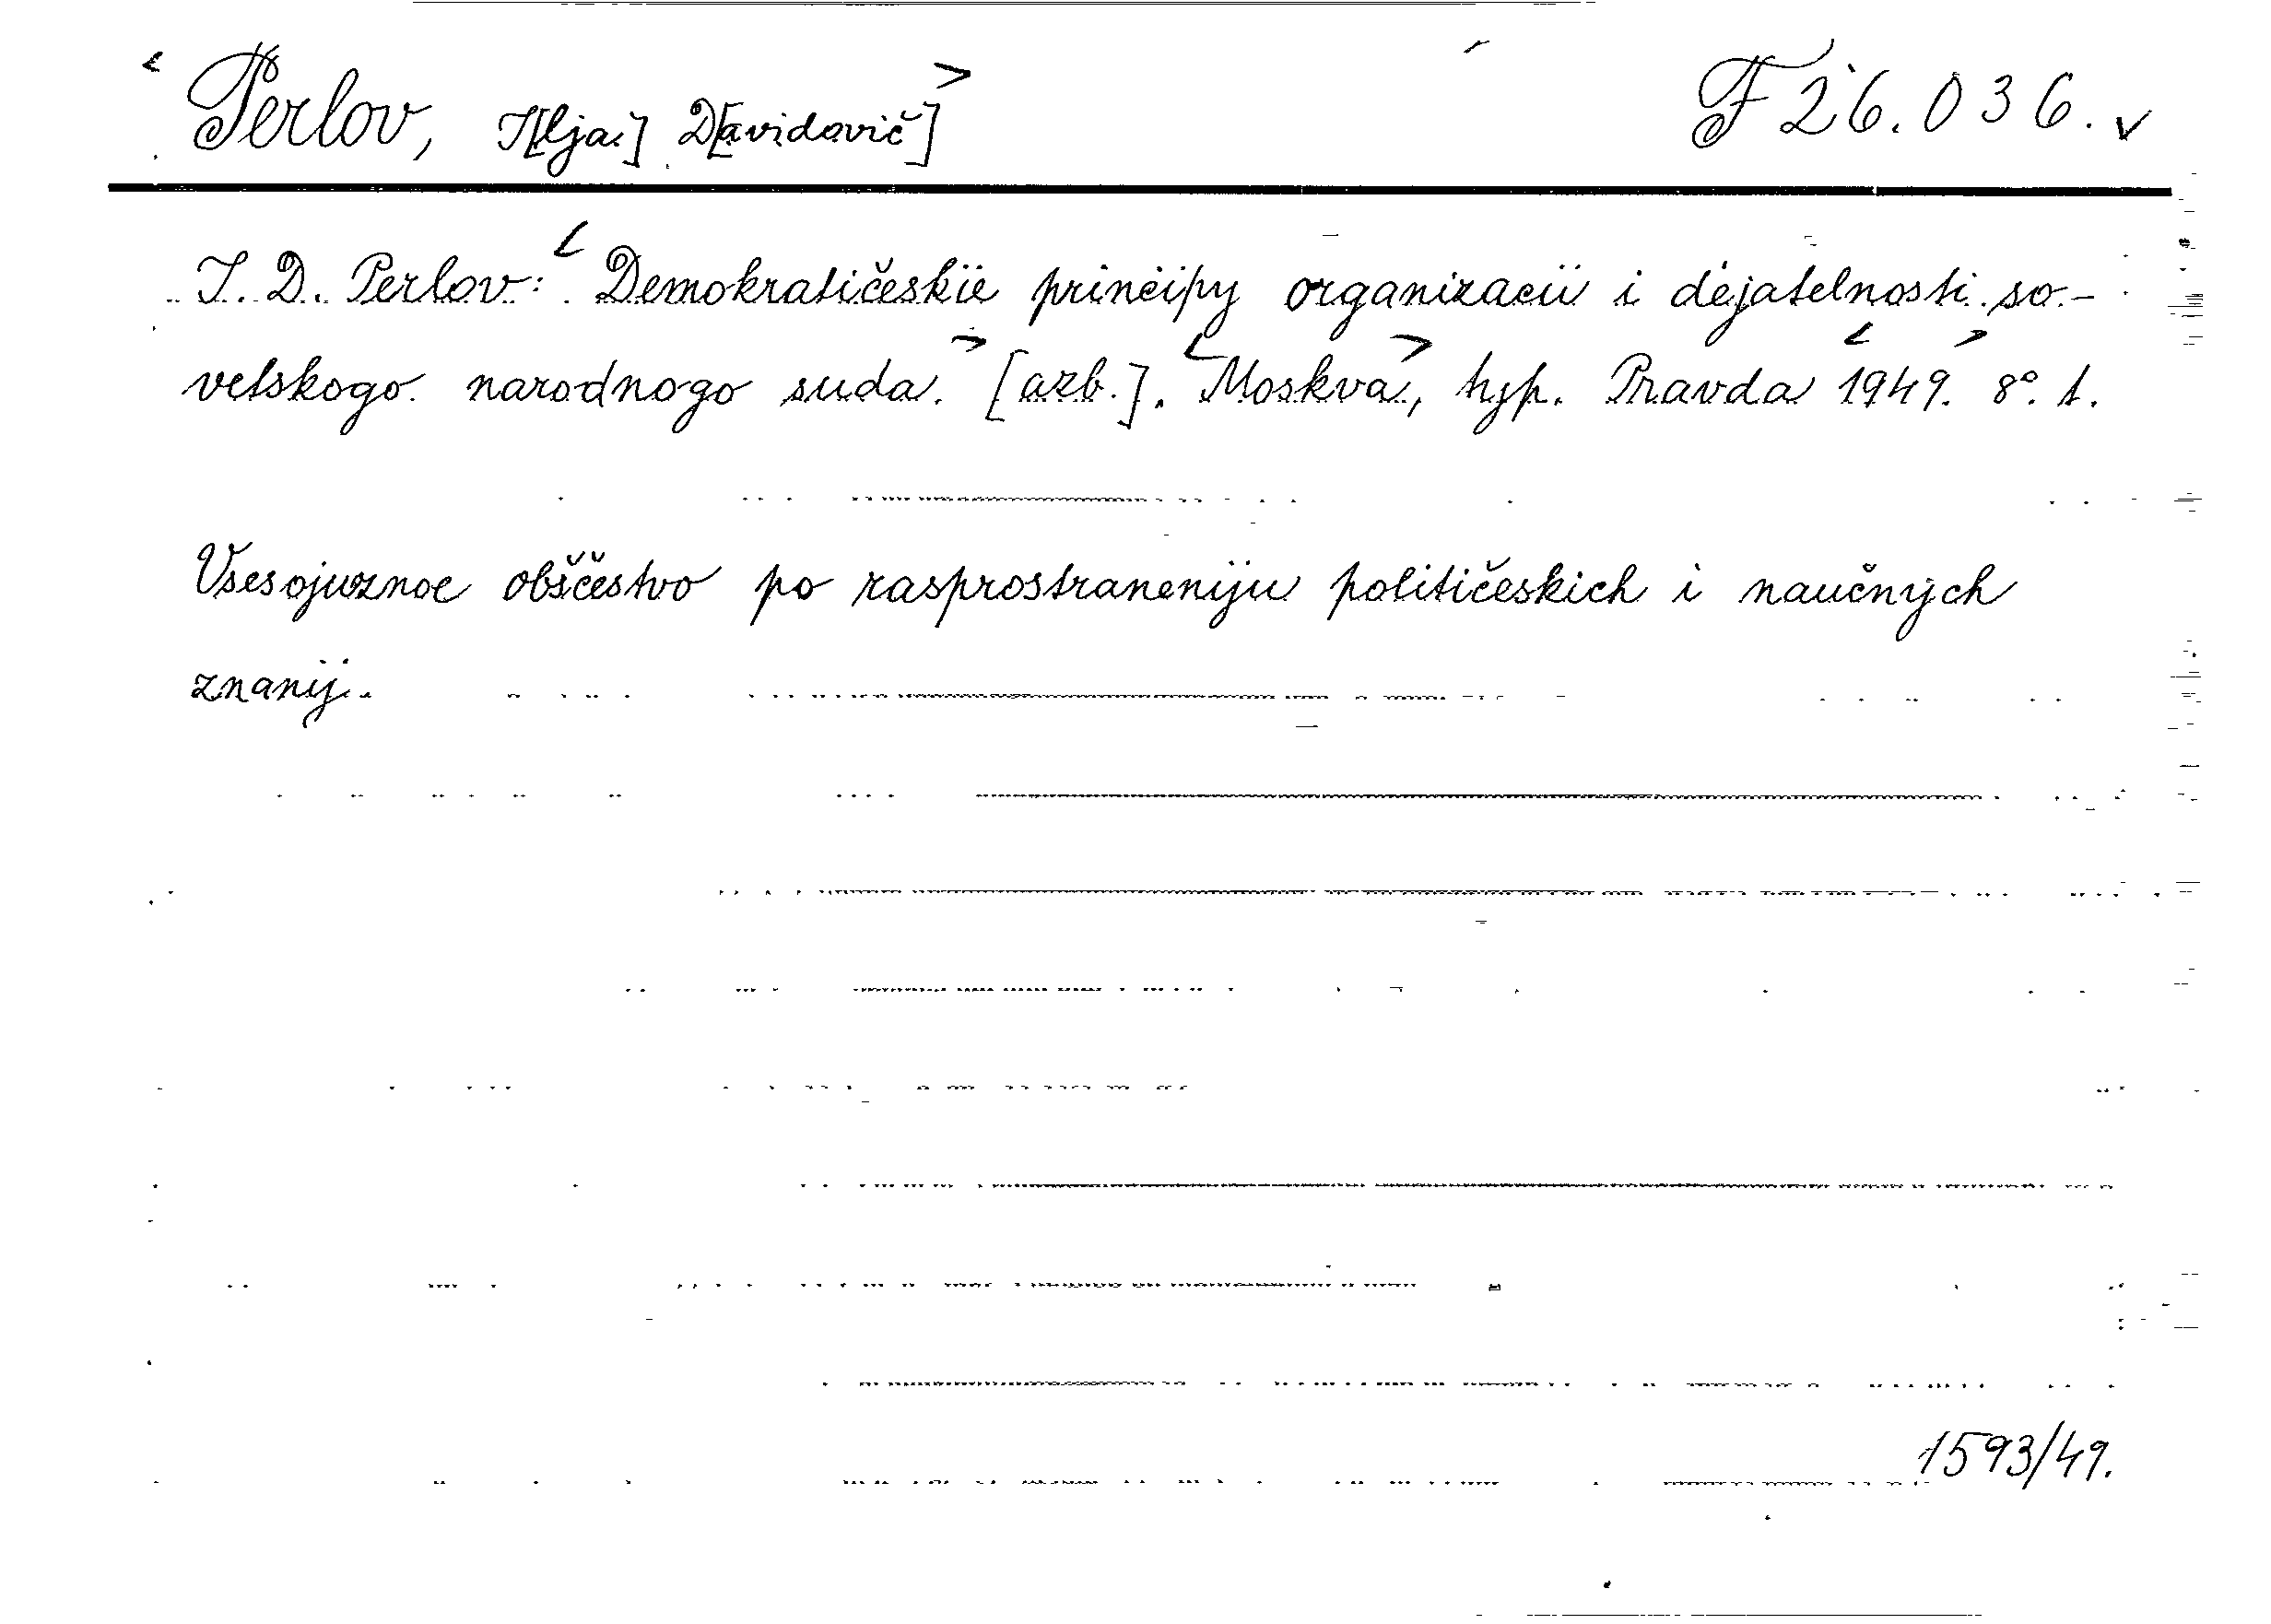 <Perlov, I[lja] D[avidovič]> F 26.036.v
I. D. Perlov: <Demokratičeskïe principy organizacïï i dějatelnosti so-
vetskogo narodnogo suda.> [azb.]. <Moskva>, typ. Pravda <1949>. 8°. 1.
Vsesojuznoe obščestvo po rasprostraneniju političeskich i naučnych
znanij.
1593/49.